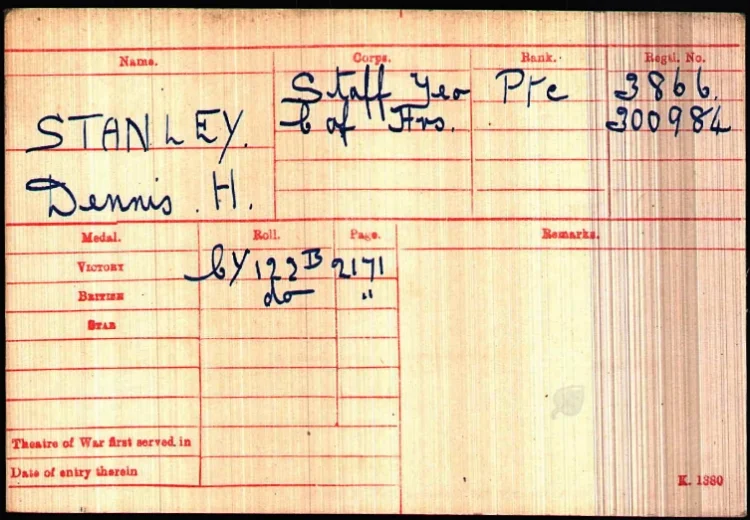 Name. Corps. Rank. Regtl. No.
Staff Yeo Pte 3866.
STANLEY. C of Hrs. 300984
Dennis . H.
Medal. Roll. Page. Remarks.
VICTORY CY 122 B 2171
BRITISH do "
STAR
Theatre of War first served in
Date of entry therein
K. 1380